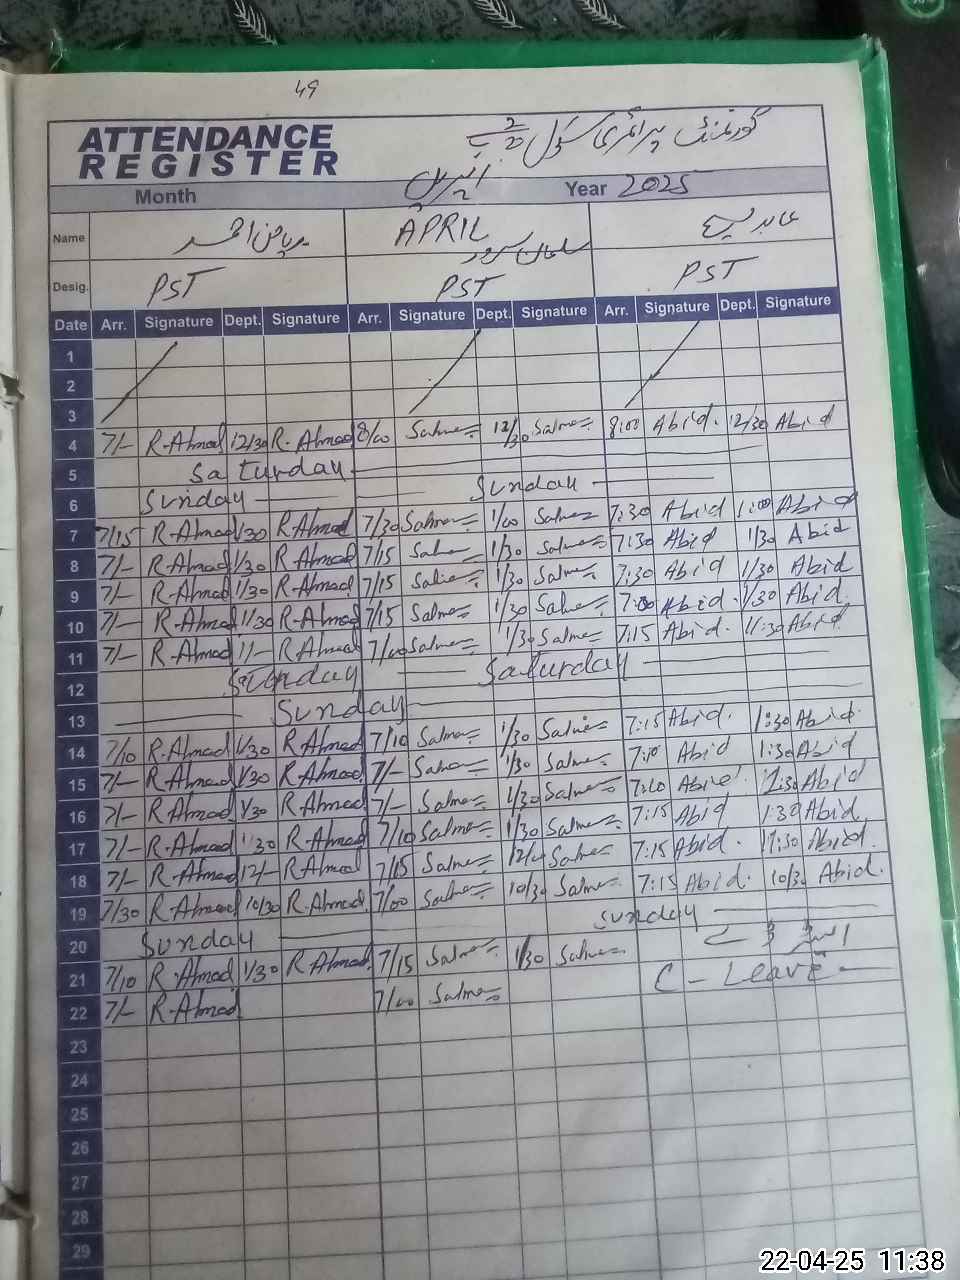 49
ATTENDANCE
REGISTER
گورنمنٹ پرائمری سکول
Month اپریل Year 2025
Name ریاض احمد APRIL سلمان سرور عابد مسیح
Desig. PST PST PST
Date Arr. Signature Dept. Signature Arr. Signature Dept. Signature Arr. Signature Dept. Signature
1
2
3
4 7/- R-Ahmad 12/30 R-Ahmad 8/00 Salman 12/30 Salman 8:00 Abid. 12/30 Abid
5 Saturday
6 Sunday Sunday
7 7/15 R-Ahmad 1/30 R.Ahmad 7/30 Salman 1/00 Salman 7:30 Abid 1:00 Abid
8 7/- R-Ahmad 1/30 R-Ahmad 7/15 Salman 1/30 Salman 7:30 Abid 1/30 Abid
9 7/- R-Ahmad 1/30 R-Ahmad 7/15 Salman 1/30 Salman 7:30 Abid 1/30 Abid
10 7/- R-Ahmad 1/30 R-Ahmad 7/15 Salman 1/30 Salman Abid. 1/30 Abid.
11 7/- R-Ahmad 11/- R-Ahmad 7/00 Salman Salman 7:15 Abid. 11:30 Abid
12 Saturday
13 Sunday
14 7/10 R-Ahmad 1/30 R.Ahmad 7/10 Salman 1/30 Salman 7:15 Abid. 1:30 Abid.
15 7/- R-Ahmad 1/30 R-Ahmad 7/- Salman 1/30 Salman 7:10 Abid 1:30 Abid
16 7/- R-Ahmad 1/30 R-Ahmad 7/- Salman 1/30 Salman 7:10 Abid 1:30 Abid
17 7/- R-Ahmad 1/30 R-Ahmad 7/10 Salman 1/30 Salman 7:15 Abid 1:30 Abid.
18 7/- R-Ahmad 12/- R-Ahmad 7/15 Salman Salman 7:15 Abid. 11:30 Abid.
19 7/30 R-Ahmad 10/30 R-Ahmad. 7/00 Salman 10/30 Salman 7:15 Abid. 10/30 Abid.
20 Sunday Sunday
21 7/10 R-Ahmad 1/30 R-Ahmad. 7/15 Salman 1/30 Salman C-Leave
22 7/- R-Ahmad 7/00 Salman
23
24
25
26
27
28
29
22-04-25 11:38